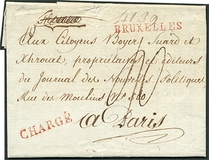 BRUXELLES
Aux Citoyens Boyer, Suard et
Xhrouet, propriétaires et éditeurs
du Journal des Nouvelles Politiques
Rue des Moulins N° 500
CHARGÉ
a Paris